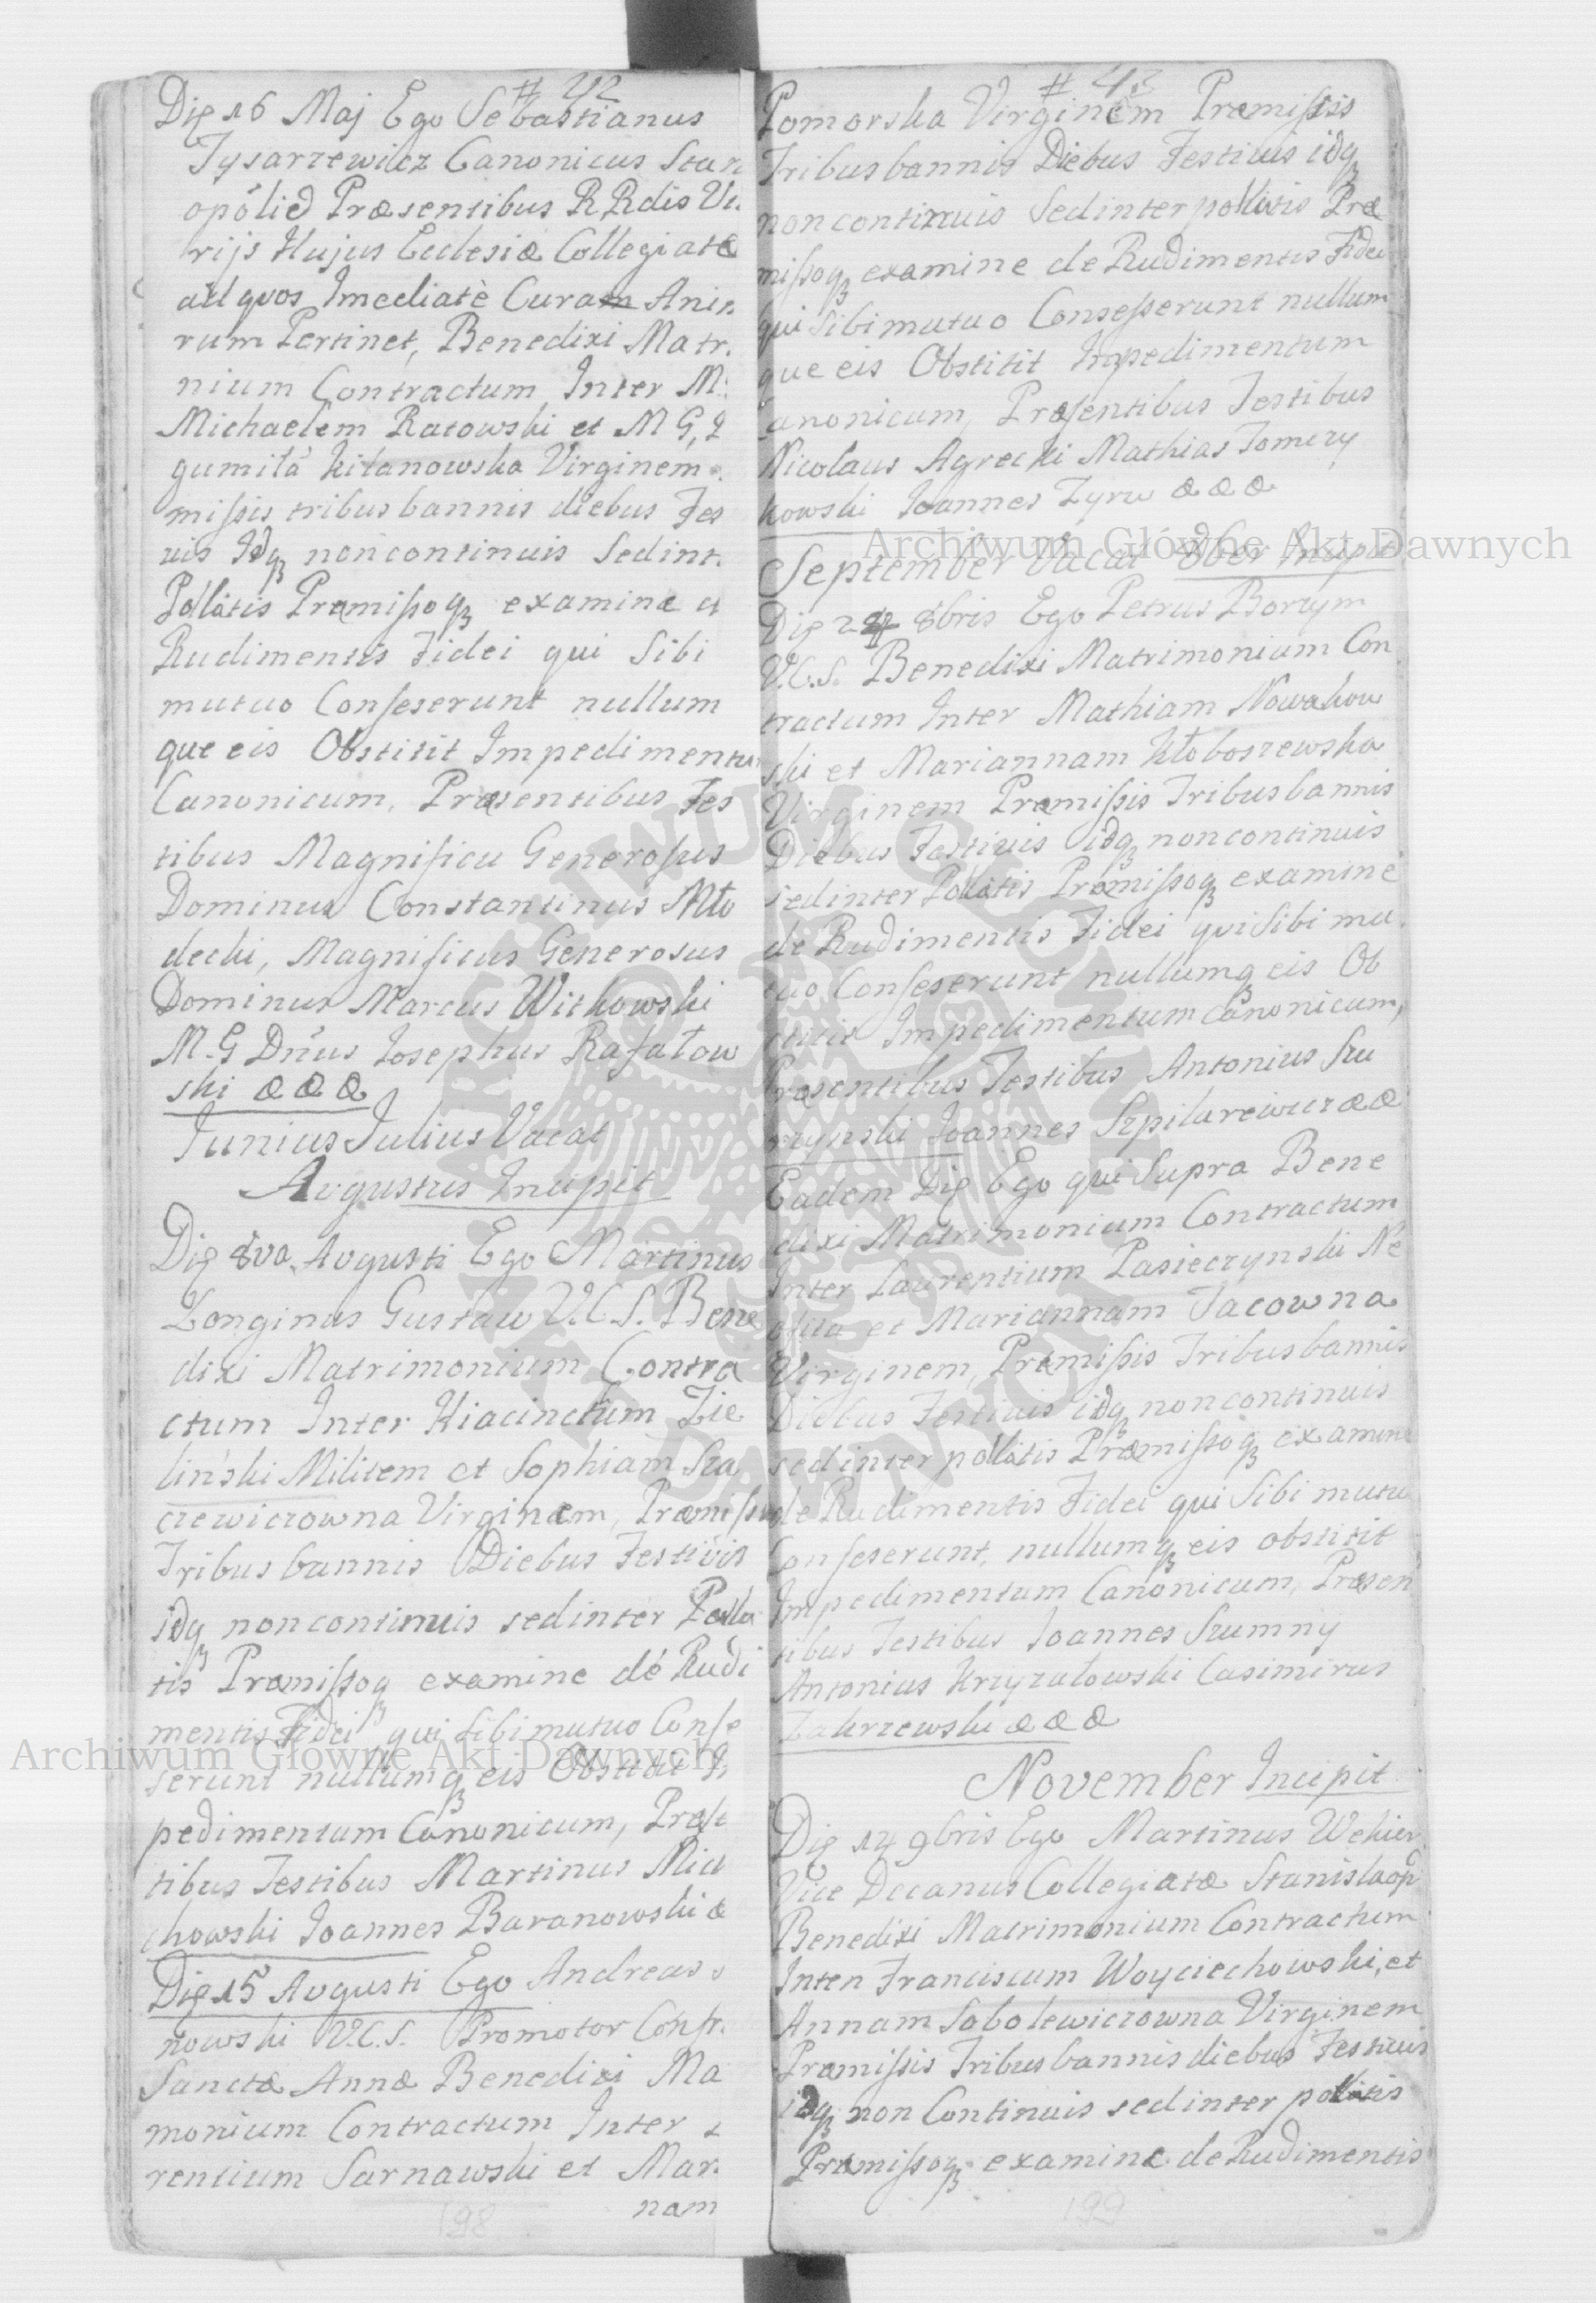 # 42
Die 16 Maj Ego Sebastianus
Tysarzewicz Canonicus Stan
opolieð Præsentibus RRdis Vi.
rijs Hujus Ecclesiæ Collegiatæ
ad quos Imediatè Curam Anim
rum Pertinet, Benedixi Matr.
nium Contractum Inter M:
Michaelem Ratowski et M G,
gumiła Kitanowska Virginem
missis tribus bannis diebus Fes
uis Idqꝫ non continuis Sedint.
Pollatis Præmissoqꝫ examine d
Rudimentis Fidei qui Sibi
mutuo Conseserunt nullum
que eis Obstitit Impedimentu
Canonicum, Præsentibus Tes
tibus Magnificu Generosus
Dominus Constantinus Mło
decki, Magnificus Generosus
Dominus Marcus Witkowski
M. G Dnus Iosephus Rafałow
ski æ æ æ
Junius Julius Vacat
Avgustus Incipit
Die 8va Avgusti Ego Martinus
Longinus Gustaw V.C.S. Bene
dixi Matrimonium Contra
ctum Inter Hiacinctum Zie
linski Militem et Sophiam Sza
czewiczowna Virginem, Præmissis
Tribus bannis Diebus Festivis
idqꝫ non continuis sedinter Polla
tis Præmissoqꝫ examine dé Rudi
mentis Fidei qui Sibi mutuo Conse
serunt nullumqꝫ eis Obstitit I
pedimentum Canonicum, Præse
tibus Testibus Martinus Mia
chowski Ioannes Baranowski æ
Die 15 Avgusti Ego Andreas
nowski V.C.S. Promotor Confr.
Sanctæ Annæ Benedixi Ma
monium Contractum Inter
rentium Sarnawski et Mar.
nam
198
# 43
Pomorska Virginem Præmissis
Tribus bannis Diebus Festivis idqꝫ
non continuis Sedinter pollatis Præ
missoqꝫ examine de Rudimentis Fidei
qui Sibi mutuo Consesserunt nullum
que eis Obstitit Impedimentum
Canonicum, Præsentibus Testibus
Nicolaus Agrecki Mathias Tomczy
kowski Ioannes Zyrw æ æ æ
September Vacat 8ber Incipit
Die 24 8bris Ego Petrus Borzym
V.C.S. Benedixi Matrimonium Con
tractum Inter Mathiam Nowakow
ski et Mariannam Kłoboszewska
Virginem Præmissis Tribus bannis
Diebus Festivis idqꝫ non continuis
sedinter Pollatis Præmissoqꝫ examine
de Rudimentis Fidei qui Sibi mu
tuo Conseserunt nullumq eis Ob
stitit Impedimentum Canonicum,
Præsentibus Testibus Antonius Szu
rzynski Ioannes Szpilarewicz æ æ
Eadem Die Ego qui Supra Bene
dixi Matrimonium Contractum
Inter Laurentium Pasieczynski Ne
ofita et Mariannam Jacowna
Virginem, Præmissis Tribus bannis
Diebus Festivis idqꝫ non continuis
sedinter pollatis Præmissoqꝫ examine
de Rudimentis Fidei qui Sibi mutu
Conseserunt, nullumqꝫ eis obstitit
Impedimentum Canonicum, Præsen
tibus Testibus Ioannes Szumny
Antonius Krzyzałowski Casimirus
Zakrzewski æ æ æ
November Incipit
Die 14 9bris Ego Martinus Wehier
Vice Decanus Collegiatæ Stanislaop
Benedixi Matrimonium Contractum
Inter Franciscum Woyciechowski, et
Annam Sobolewiczowna Virginem
Præmissis Tribus bannis diebus Festiuis
idqꝫ non Continuis sedinter pollatis
Præmissoqꝫ examine de Rudimentis
199
Archiwum Główne Akt Dawnych
Archiwum Główne Akt Dawnych
ARCHIWUM GŁÓWNE AKT DAWNYCH